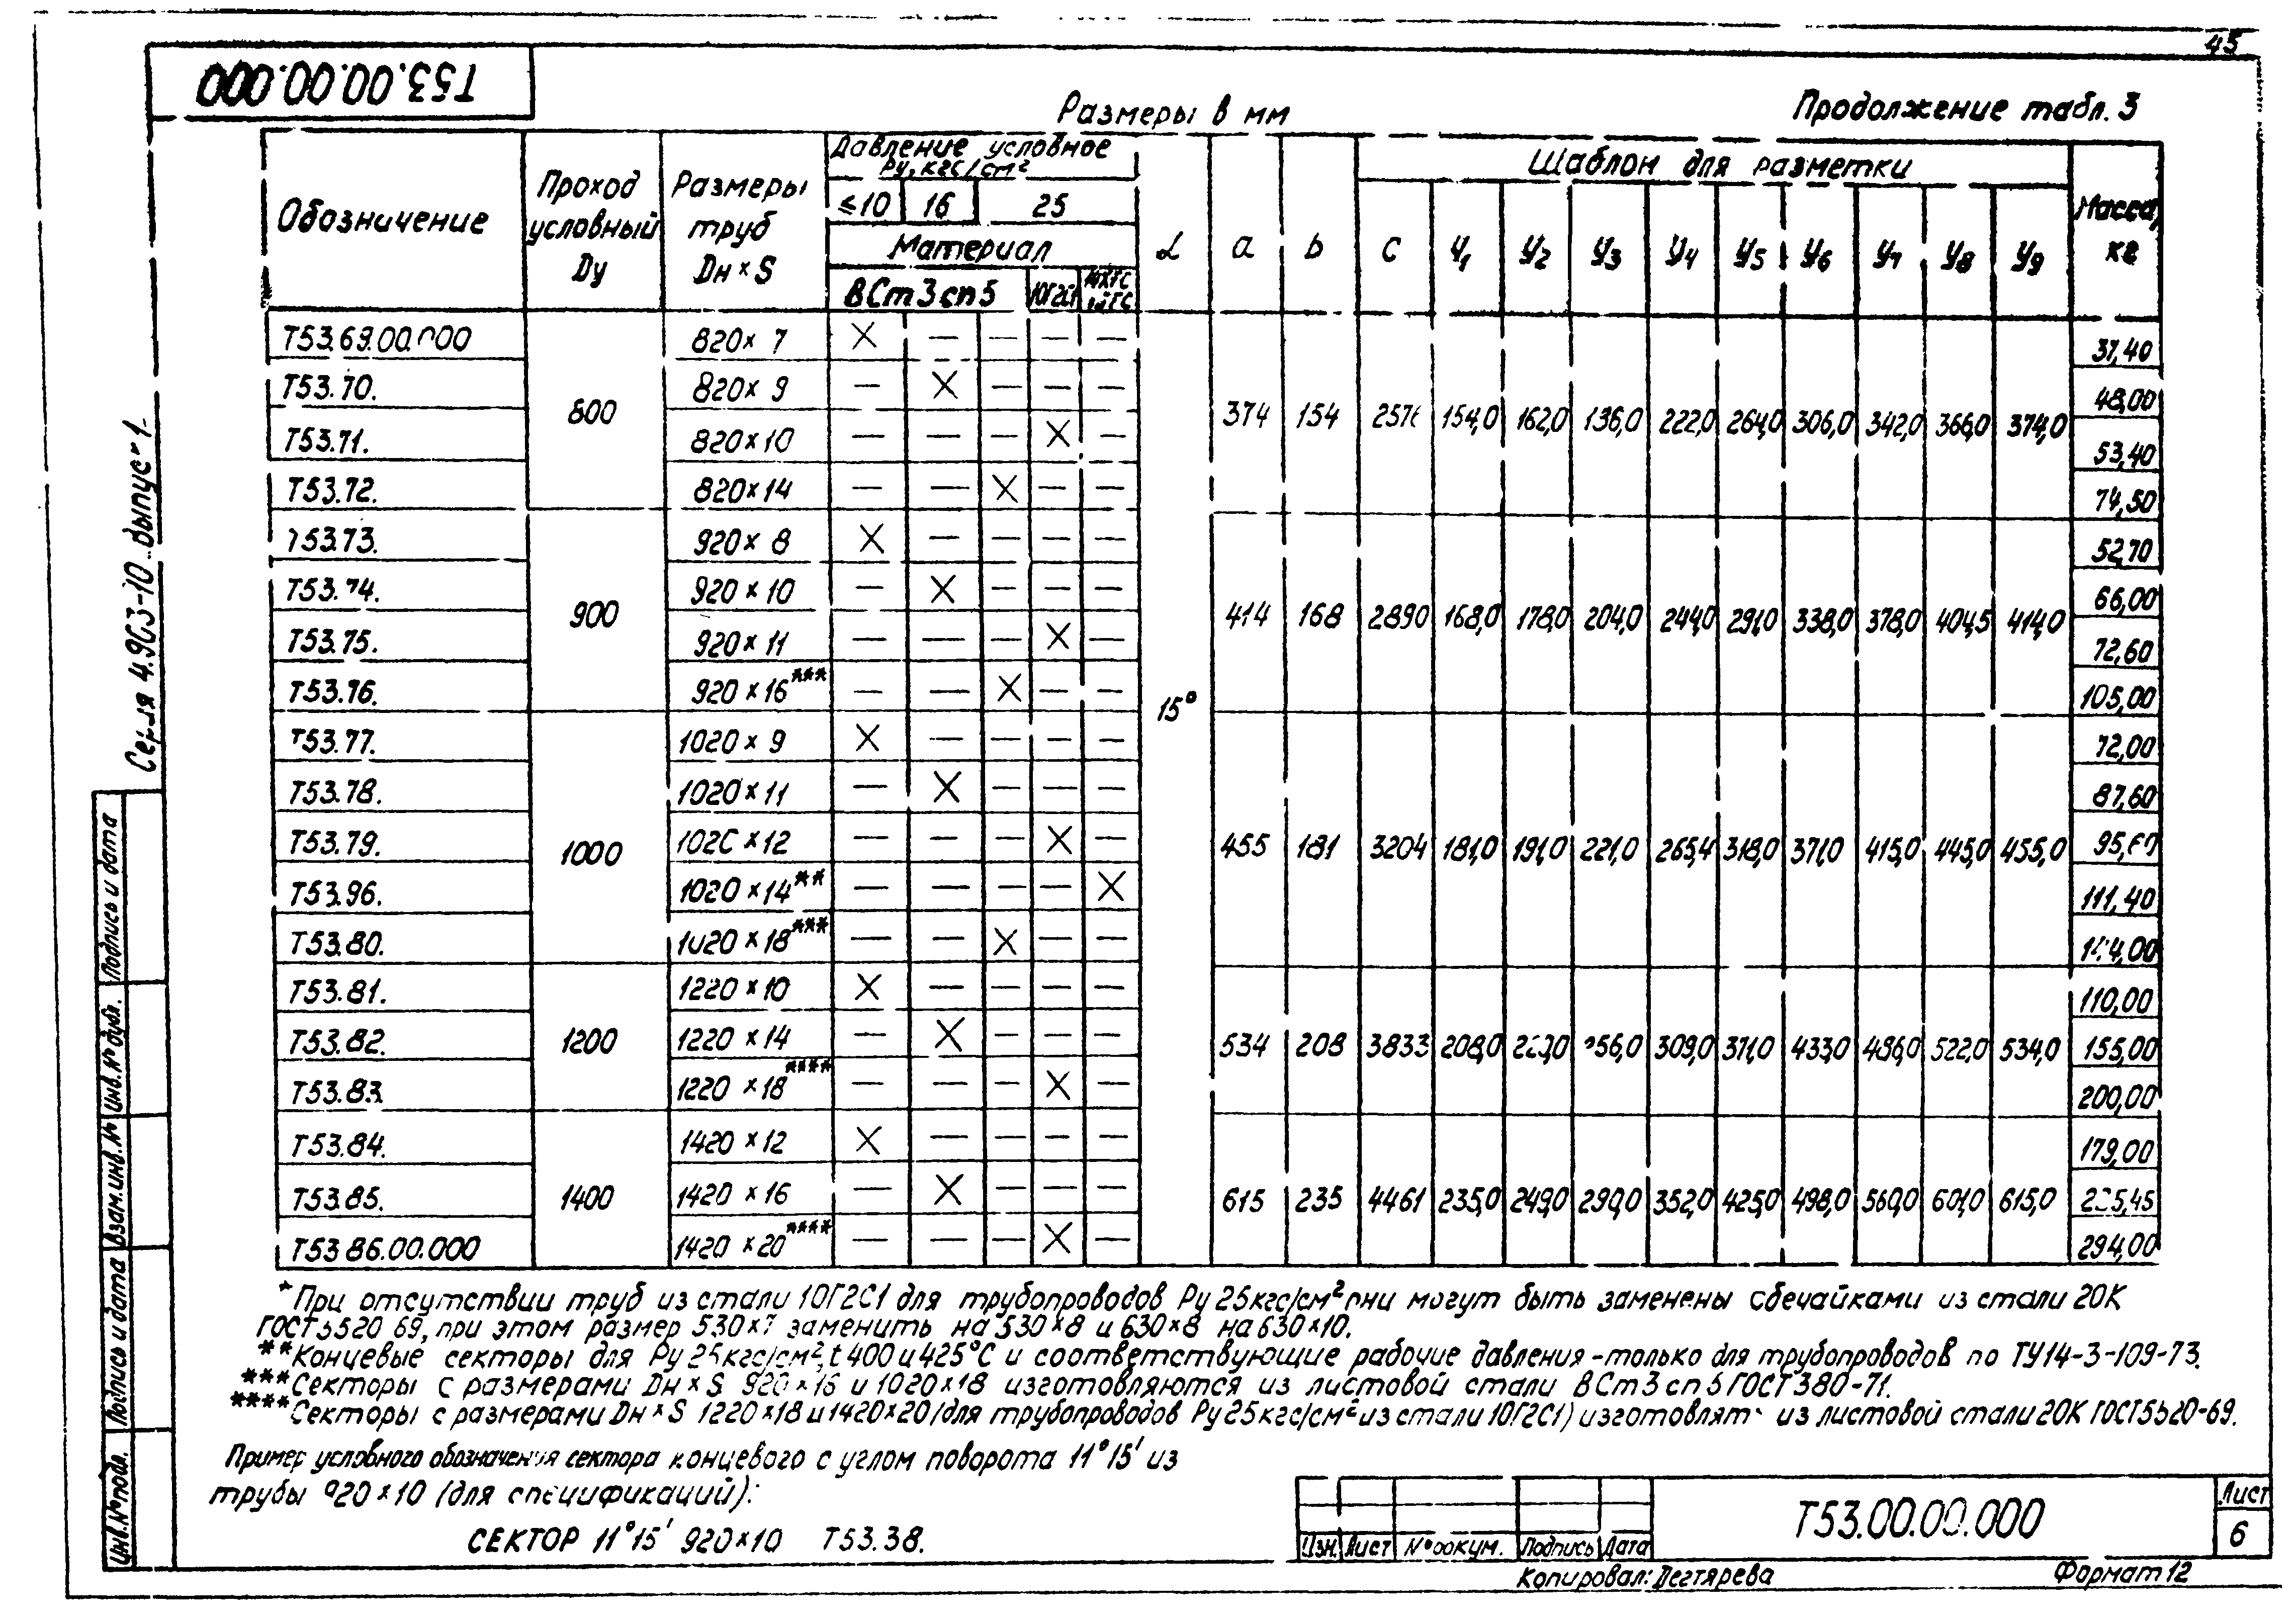 45
Т53.00.00.000
Размеры в мм
Продолжение табл. 3
Обозначение | Проход условный Dу | Размеры труб Dн × S | Давление условное Ру, кгс/см² | α | a | b | Шаблон для разметки | Масса, кг
≤10 | 16 | 25
Материал
ВСт3сп5 | 10Г2С1
c | У1 | У2 | У3 | У4 | У5 | У6 | У7 | У8 | У9
Т53.69.00.000 | 800 | 820 × 7 | × | — | — | — | — | 15° | 374 | 154 | 2576 | 154,0 | 162,0 | 136,0 | 222,0 | 264,0 | 306,0 | 342,0 | 366,0 | 374,0 | 37,40
Т53.70. | 820 × 9 | — | × | — | — | — | 48,00
Т53.71. | 820 × 10 | — | — | — | × | — | 53,40
Т53.72. | 820 × 14 | — | — | × | — | — | 74,50
Т53.73. | 900 | 920 × 8 | × | — | — | — | — | 414 | 168 | 2890 | 168,0 | 178,0 | 204,0 | 244,0 | 291,0 | 338,0 | 378,0 | 404,5 | 414,0 | 52,70
Т53.74. | 920 × 10 | — | × | — | — | — | 66,00
Т53.75. | 920 × 11 | — | — | — | × | — | 72,60
Т53.76. | 920 × 16*** | — | — | × | — | — | 105,00
Т53.77. | 1000 | 1020 × 9 | × | — | — | — | — | 455 | 181 | 3204 | 181,0 | 191,0 | 221,0 | 265,4 | 318,0 | 371,0 | 415,0 | 445,0 | 455,0 | 72,00
Т53.78. | 1020 × 11 | — | × | — | — | — | 87,60
Т53.79. | 1020 × 12 | — | — | — | × | —
Т53.96. | 1020 × 14** | — | — | — | — | × | 111,40
Т53.80. | 1020 × 18*** | — | — | × | — | —
Т53.81. | 1200 | 1220 × 10 | × | — | — | — | — | 534 | 208 | 3833 | 208,0 | 309,0 | 371,0 | 433,0 | 486,0 | 522,0 | 534,0 | 110,00
Т53.82. | 1220 × 14 | — | × | — | — | — | 155,00
Т53.83. | 1220 × 18**** | — | — | — | × | — | 200,00
Т53.84. | 1400 | 1420 × 12 | × | — | — | — | — | 615 | 235 | 4461 | 235,0 | 249,0 | 290,0 | 352,0 | 425,0 | 498,0 | 560,0 | 601,0 | 615,0 | 179,00
Т53.85. | 1420 × 16 | — | × | — | — | —
Т53.86.00.000 | 1420 × 20**** | — | — | — | × | — | 294,00
* При отсутствии труб из стали 10Г2С1 для трубопроводов Ру 25кгс/см² они могут быть заменены обечайками из стали 20К
ГОСТ 5520 69, при этом размер 530×7 заменить на 530×8 и 630×8 на 630×10.
** Концевые секторы для Ру 25кгс/см², t 400 и 425°С и соответствующие рабочие давления - только для трубопроводов по ТУ14-3-109-73.
*** Секторы с размерами Dн × S 920×16 и 1020×18 изготовляются из листовой стали ВСт3сп5 ГОСТ 380-71.
**** Секторы с размерами Dн × S 1220×18 и 1420×20 (для трубопроводов Ру 25кгс/см² из стали 10Г2С1) изготовлять из листовой стали 20К ГОСТ 5520-69.
Пример условного обозначения сектора концевого с углом поворота 11°15′ из
трубы 920×10 (для спецификаций):
СЕКТОР 11°15′ 920×10 Т53.38.
Серия 4.903-10 выпуск 1
Подпись и дата
Инв.№ дубл.
Взам.инв.№
Подпись и дата
Инв.№подл.
Изм. | Лист | № докум. | Подпись | Дата
Т53.00.00.000
Лист
6
Копировал: Дегтярева
Формат 12